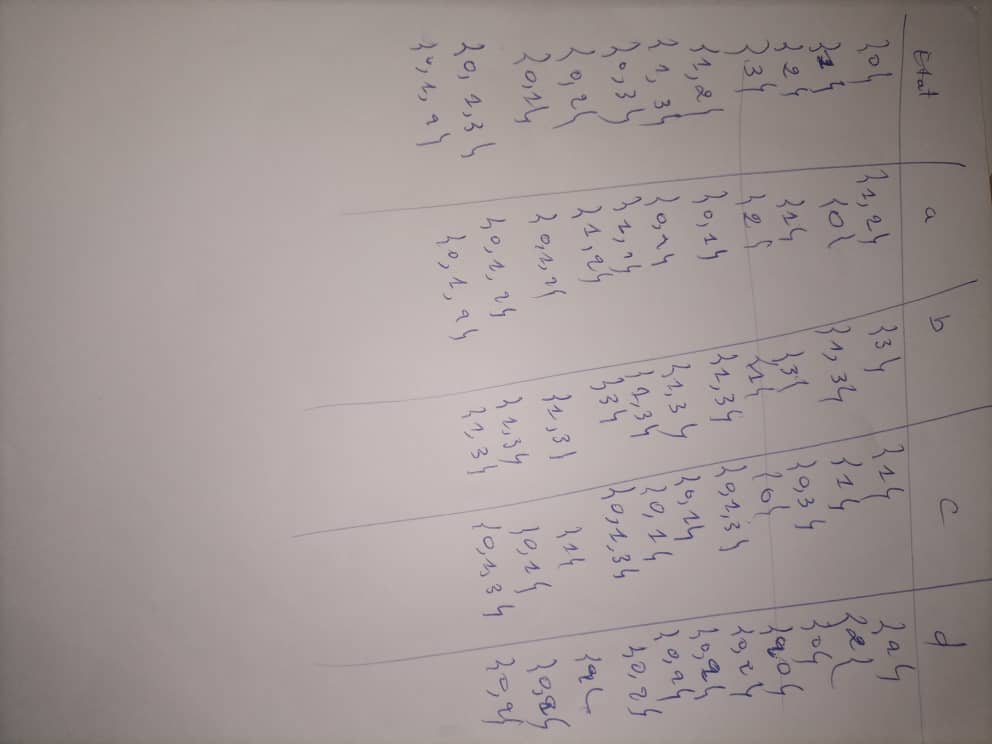 Etat a b c d
{0} {1,2} {3} {1} {2}
{1} {0} {1,3} {1} {2}
{2} {1} {3} {0,3} {0}
{3} {2} {1} {0} {0}
{1,2} {0,1} {1,3} {0,1,3} {0,2}
{1,3} {0,2} {1,3} {0,1} {0,2}
{0,3} {1,2} {1,3} {0,1} {0,2}
{0,2} {1,2} {3} {0,1,3} {0,2}
{0,1} {0,1,2} {1,3} {1} {2}
{0,1,3} {0,1,2} {1,3} {0,1} {0,2}
{0,1,2} {0,1,2} {1,3} {0,1,3} {0,2}